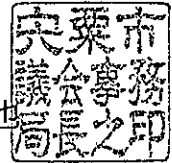 大東市
議会事務
局長之印